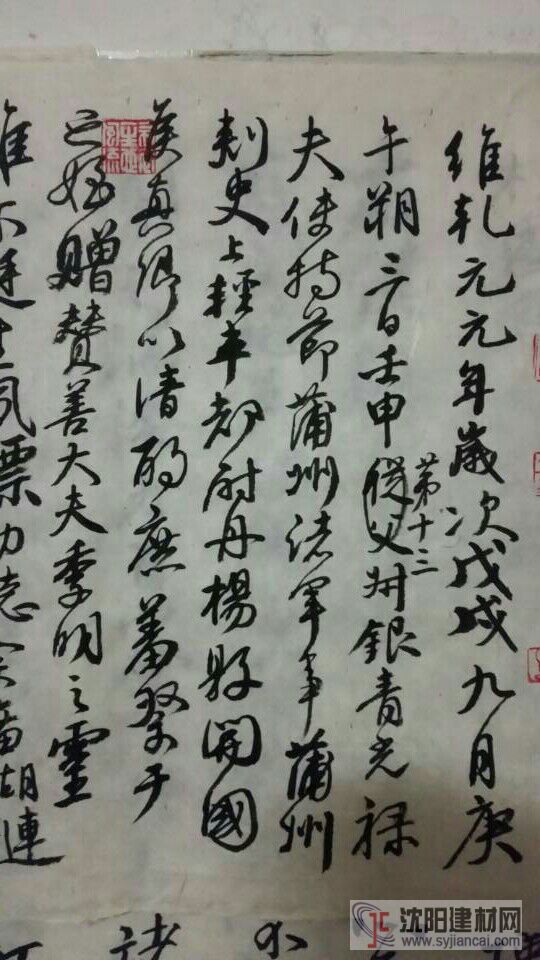 维乾元元年歲次戊戌九月庚
午朔三日壬申
第十三
從父州銀青光禄
夫使持節蒲州诸軍事蒲州
刺史上輕車都尉丹楊縣開國
侯真卿以清酌庶羞祭于
亡姪贈贊善大夫季明之靈
惟尔挺生夙標幼德宗廟瑚連
诸
尔
沈阳建材网
www.syjiancai.com